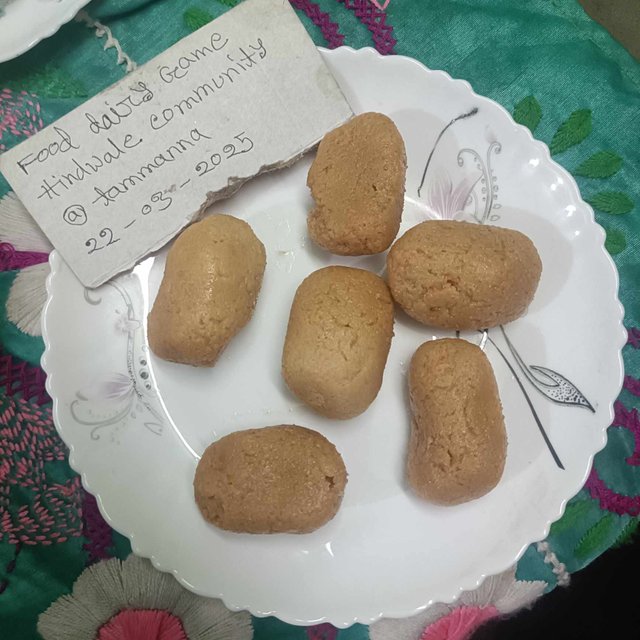 Food dairy Game
Hindwale community
@ tammanna
22-03-2025